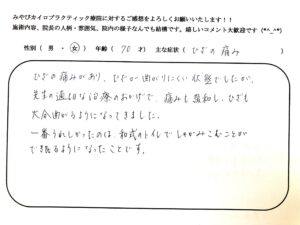 みやびカイロプラクティック療院に対するご感想をよろしくお願いいたします！！
施術内容、院長の人柄・雰囲気、院内の様子なんでも結構です。嬉しいコメント大歓迎です(*^_^*)
性別（ 男 ・ 女 ） 年齢（ 70 才） 主な症状（ ひざの痛み
ひざの痛みがあり、ひざが曲がりにくい状態でしたが、
先生の適切な治療のおかげで、痛みも緩和し、ひざも
大分曲がるようになってきました。
一番うれしかったのは、和式のトイレでしゃがみこむことが
でき居るようになったことです。